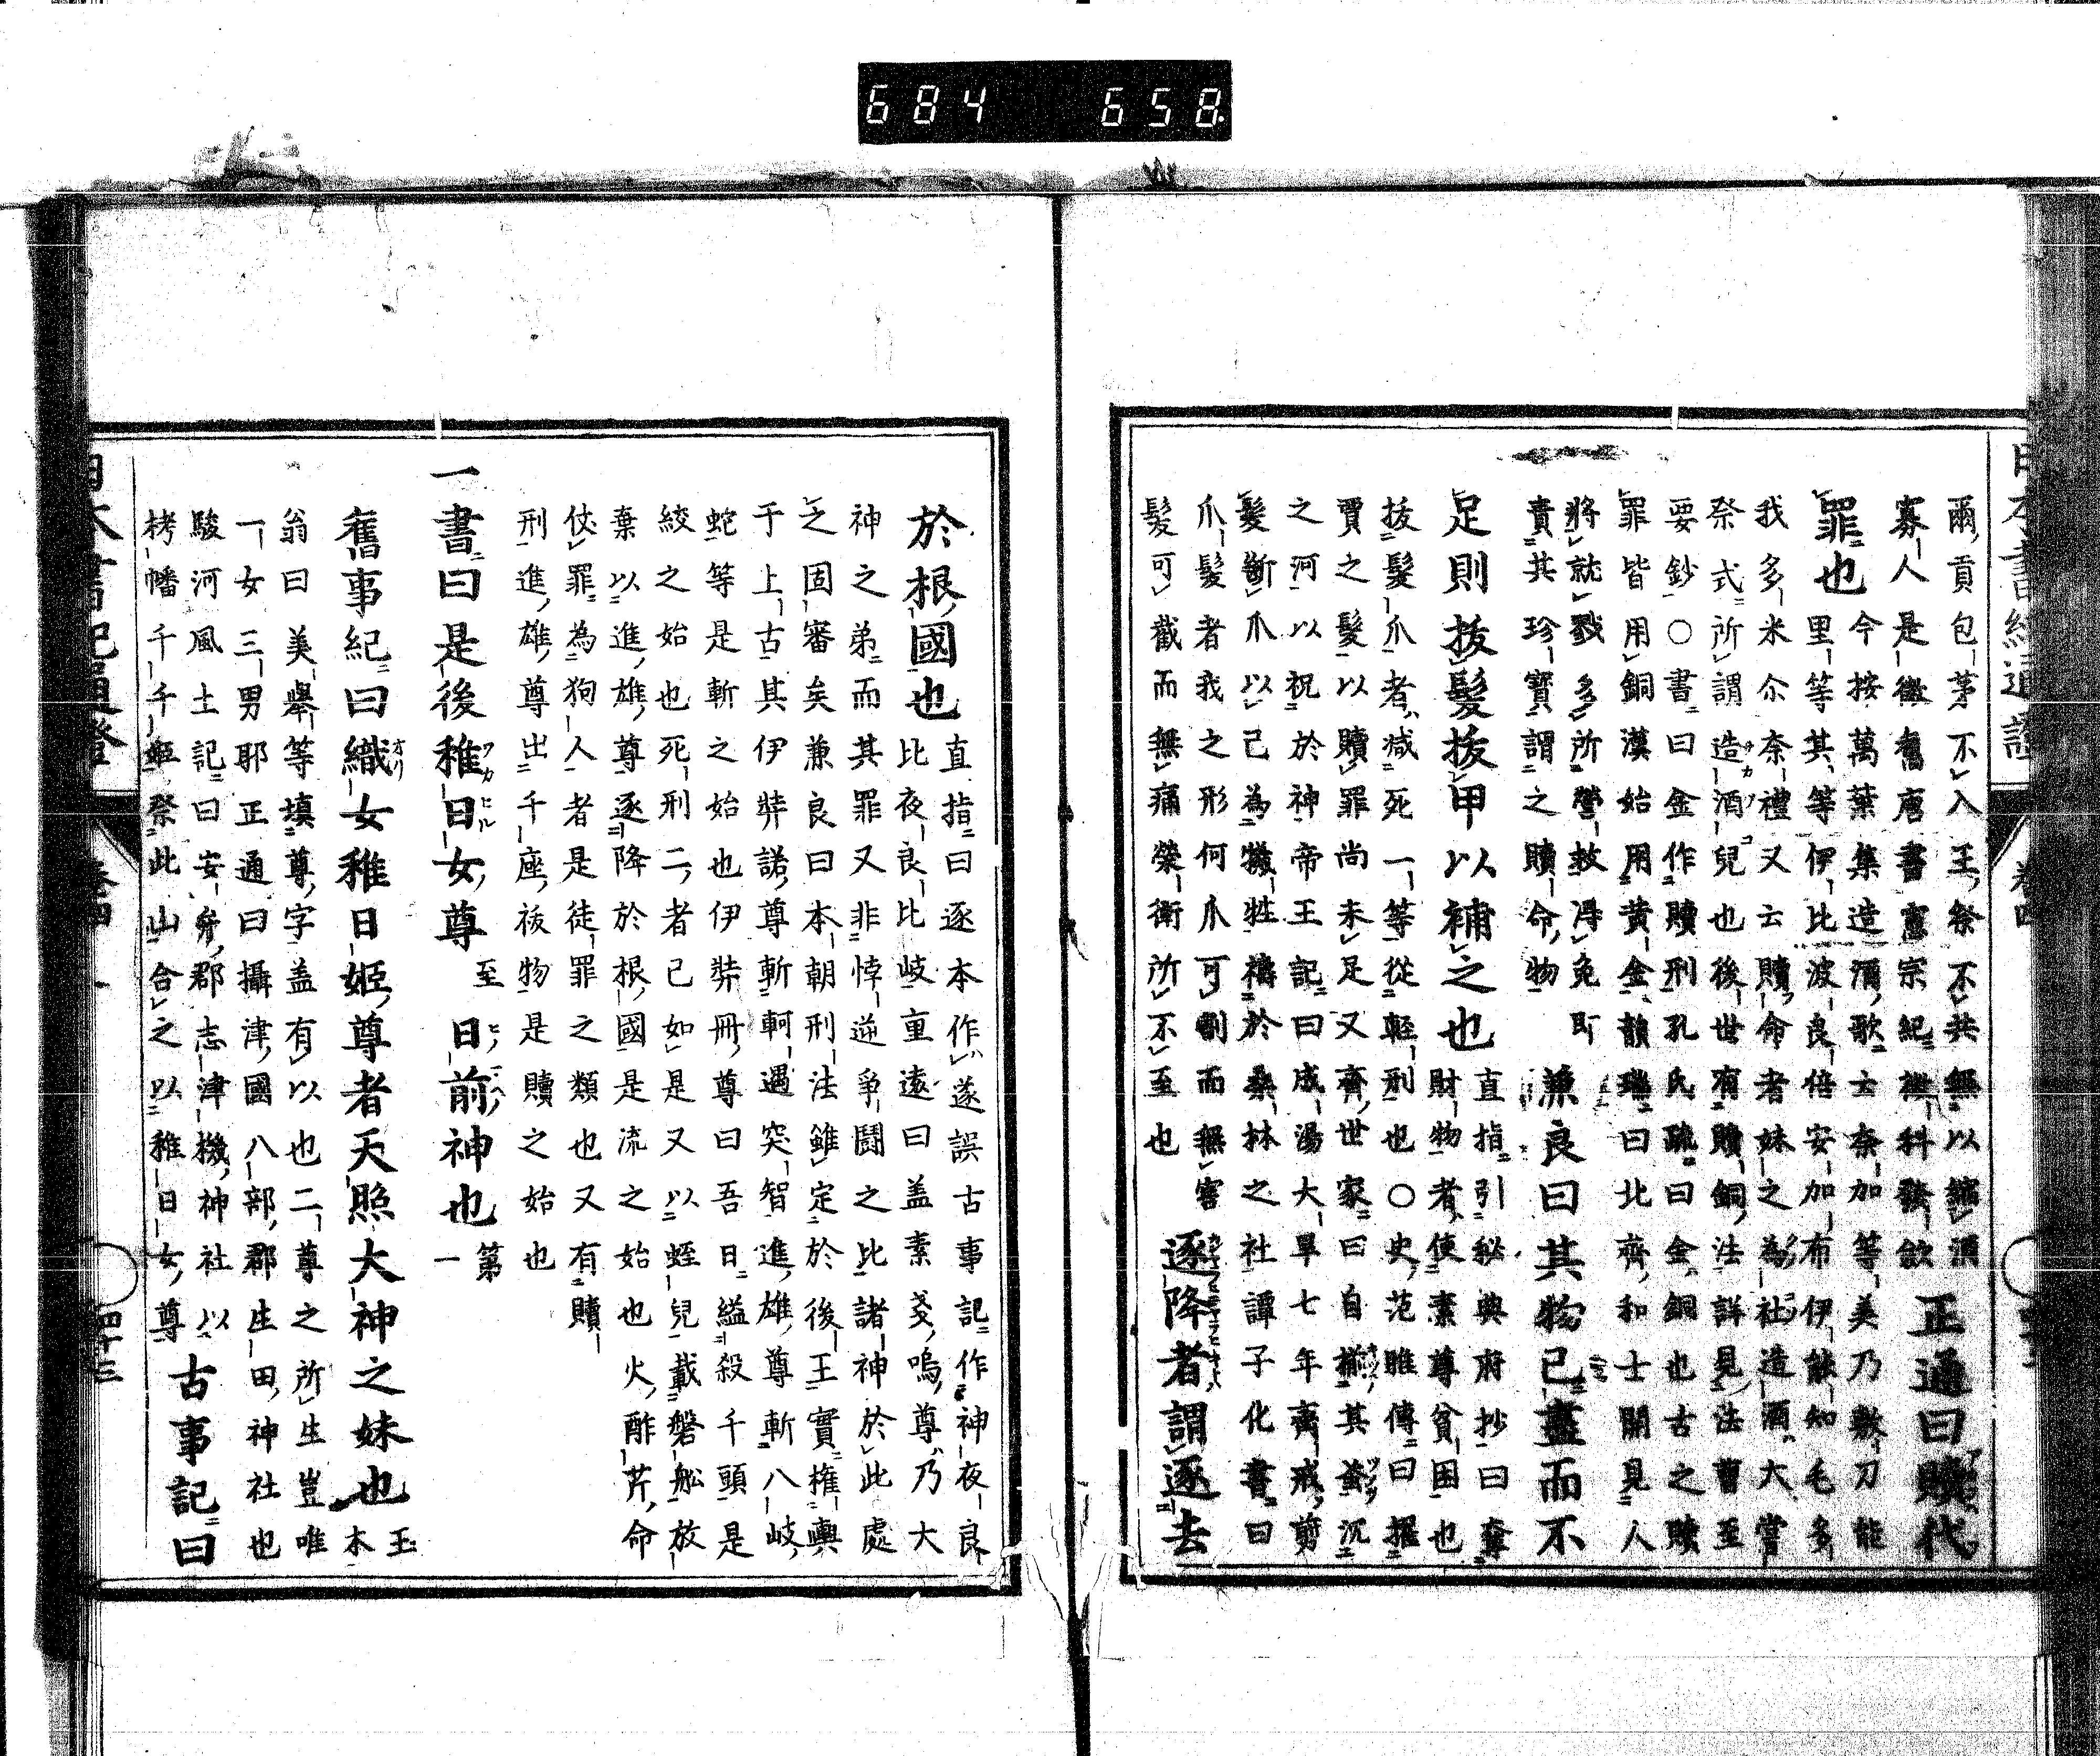 684 658
爾貢包茅不入王祭不共無以縮酒
寡人是徵舊唐書憲宗紀　科　　正通曰贖代
罪也今按萬葉集造酒歌云奈加等美乃敷刀能
里等其等伊比波良倍安加布伊能知毛多
我多米尒奈禮又云贖命者妹之為社造酒大嘗
祭式所謂造酒兒也後世有贖銅法詳見法曹至
要鈔〇書曰金作贖刑孔氏疏曰金銅也古之贖
罪皆用銅漢始用黄金韻瑞曰北齊和士開見人
將就戮多所營救得免即
責其珍寶謂之贖命物兼良曰其物已盡而不
足則拔髮拔甲以補之也直指引秘府抄曰奪
財物者使素尊貧困也
拔髮爪者減死一等從輕刑也〇史范雎傳曰擢
賈之髮以贖罪尚未足又齊世家曰自揃其蚤沉
之河以祝於神帝王記曰成湯大旱七年齋戒剪
髮斷爪以己為犧牲禱於桑林之社譚子化書曰
爪髮者我之形何爪可割而無害
髮可截而無痛榮衛所不至也逐降者謂逐去
於根國也直指曰逐本作遂誤古事記作神夜良
比夜良比岐重遠曰盖素戔嗚尊乃大
神之弟而其罪又非悖逆爭鬪之比諸神於此處
之固審矣兼良曰本朝刑法雖定於後王實權輿
于上古其伊弉諾尊斬軻遇突智進雄尊斬八岐
蛇等是斬之始也伊弉冊尊曰吾日縊殺千頭是
絞之始也死刑二者已如是又以蛭兒載磐舩放
棄以進雄尊逐降於根國是流之始也火酢芹命
伏罪為狗人者是徒罪之類也又有贖
刑進雄尊出千座祓物是贖之始也
一書曰是後稚日女尊至日前神也第一
舊事紀曰織女稚日姫尊者天照大神之妹也玉本
翁曰美舉等填尊字盖有以也二尊之所生豈唯
一女三男耶正通曰攝津國八部郡生田神社也
駿河風土記曰安弁郡志津機神社以
栲幡千千姫祭此山合之以稚日女尊古事記曰